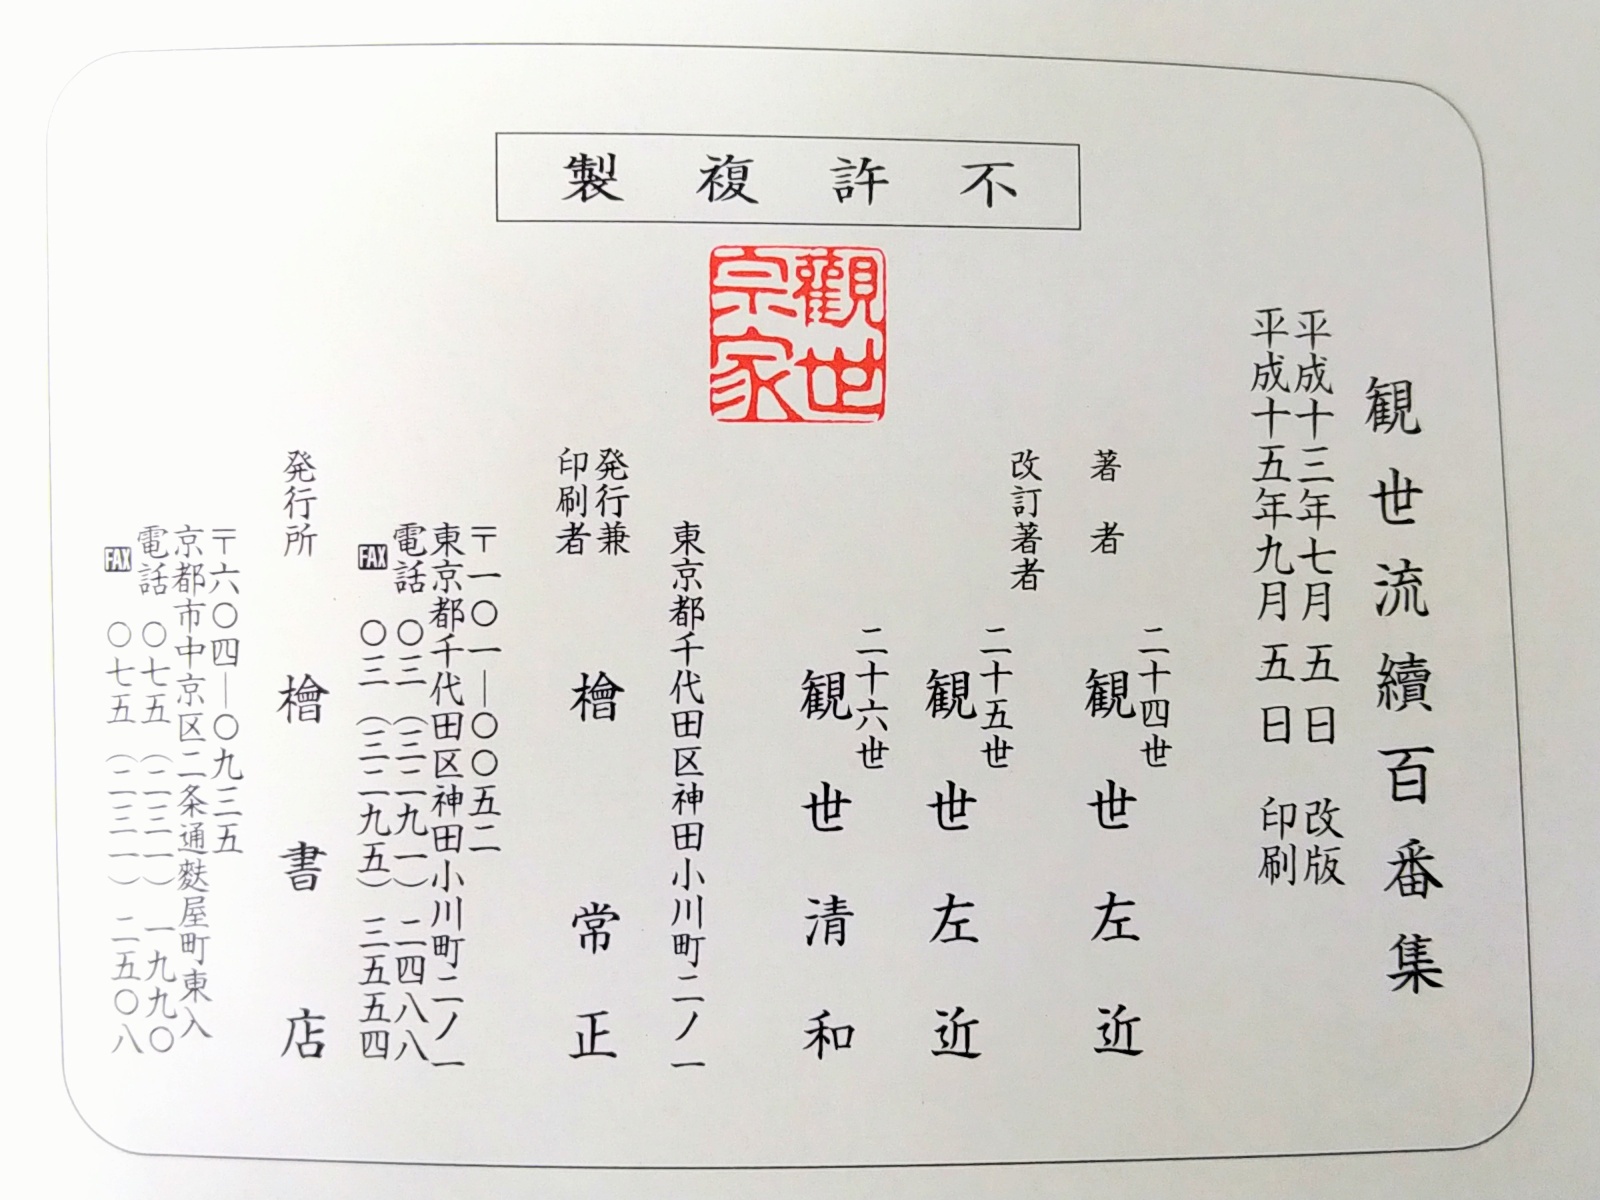 不許複製
觀世宗家
観世流續百番集
平成十三年七月五日 改版
平成十五年九月五日 印刷
著者 二十四世 観世左近
改訂著者 二十五世 観世左近
二十六世 観世清和
東京都千代田区神田小川町二ノ一
発行兼印刷者 檜常正
〒一〇一―〇〇五二
東京都千代田区神田小川町二ノ一
電話 〇三(三二九一)二四八八
FAX 〇三(三二九五)三五五四
発行所 檜書店
〒六〇四―〇九三五
京都市中京区二条通麩屋町東入
電話 〇七五(二三一)一九九〇
FAX 〇七五(二三一)二五〇八